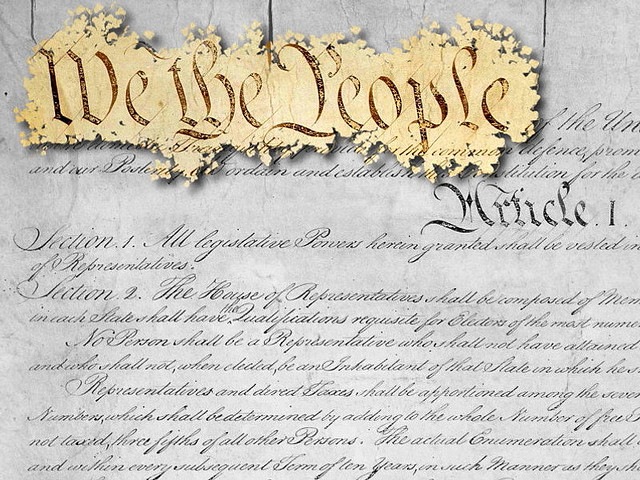 We the People
of the Un
common defence, prom
and our Poster ordain and establish titution for the
Article. I.
Section. 1. All legislative Powers herein granted shall be vested in
of Representatives.
Section. 2. The House of Representatives shall be composed of Mem
in each State shall have the Qualifications requisite for Electors of the most nume
No Person shall be a Representative who shall not have attained
and who shall not, when elected, be an Inhabitant of that State in which he s
Representatives and direct Taxes shall be apportioned among the seve
Numbers, which shall be determined by adding to the whole Number of free
not taxed, three fifths of all other Persons. The actual Enumeration shall
and within every subsequent Term of ten Years, in such Manner as they sh